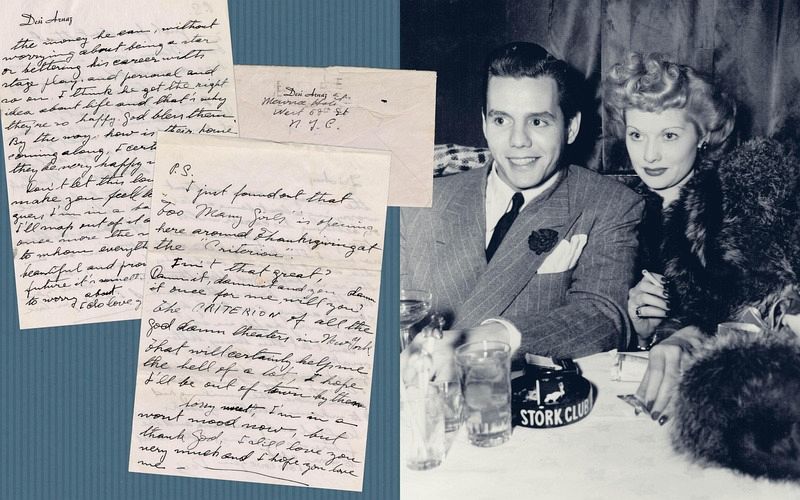 Desi Arnaz
the money he can, without
worrying about being a star
or bettering his career with
stage plays and personal and
so on. I think he got the right
idea about life and that's why
they're so happy God bless them.
By the way, how is their home
coming along, I
they be very happy
Don't let this
make you feel
I'm in a
I'll snap out of it
once more the
to whom
beautiful and
future it's
to worry about
I do love
Desi Arnaz
Maurice Hotel
West 58th St
N.Y.C.
P.S.
I just found out that
Too Many Girls is opening
here around Thanksgiving at
the "Criterion".
Isn't that great?
Damn it, damn it and you damn
it once for me will you?
The CRITERION of all the
god damn theaters in New York
that will certainly help me
the hell of a lot. I hope
I'll be out of town by then
Sorry sweet, I'm in a
worst mood now, but
thank God, I still love you
very much and I hope you love
me —
STORK CLUB